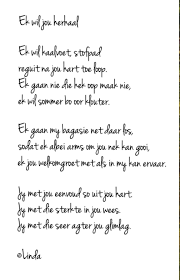 Ek wil jou herhaal
Ek wil kaalvoet, stofpad
reguit na jou hart toe loop.
Ek gaan nie die hek oop maak nie,
ek wil sommer bo oor klouter.
Ek gaan my bagasie net daar los,
sodat ek albei arms om jou nek kan gooi,
ek jou welkomgroet met als in my kan ervaar.
Jy met jou eenvoud so uit jou hart.
Jy met die sterkte in jou wees.
Jy met die seer agter jou glimlag.
©Linda